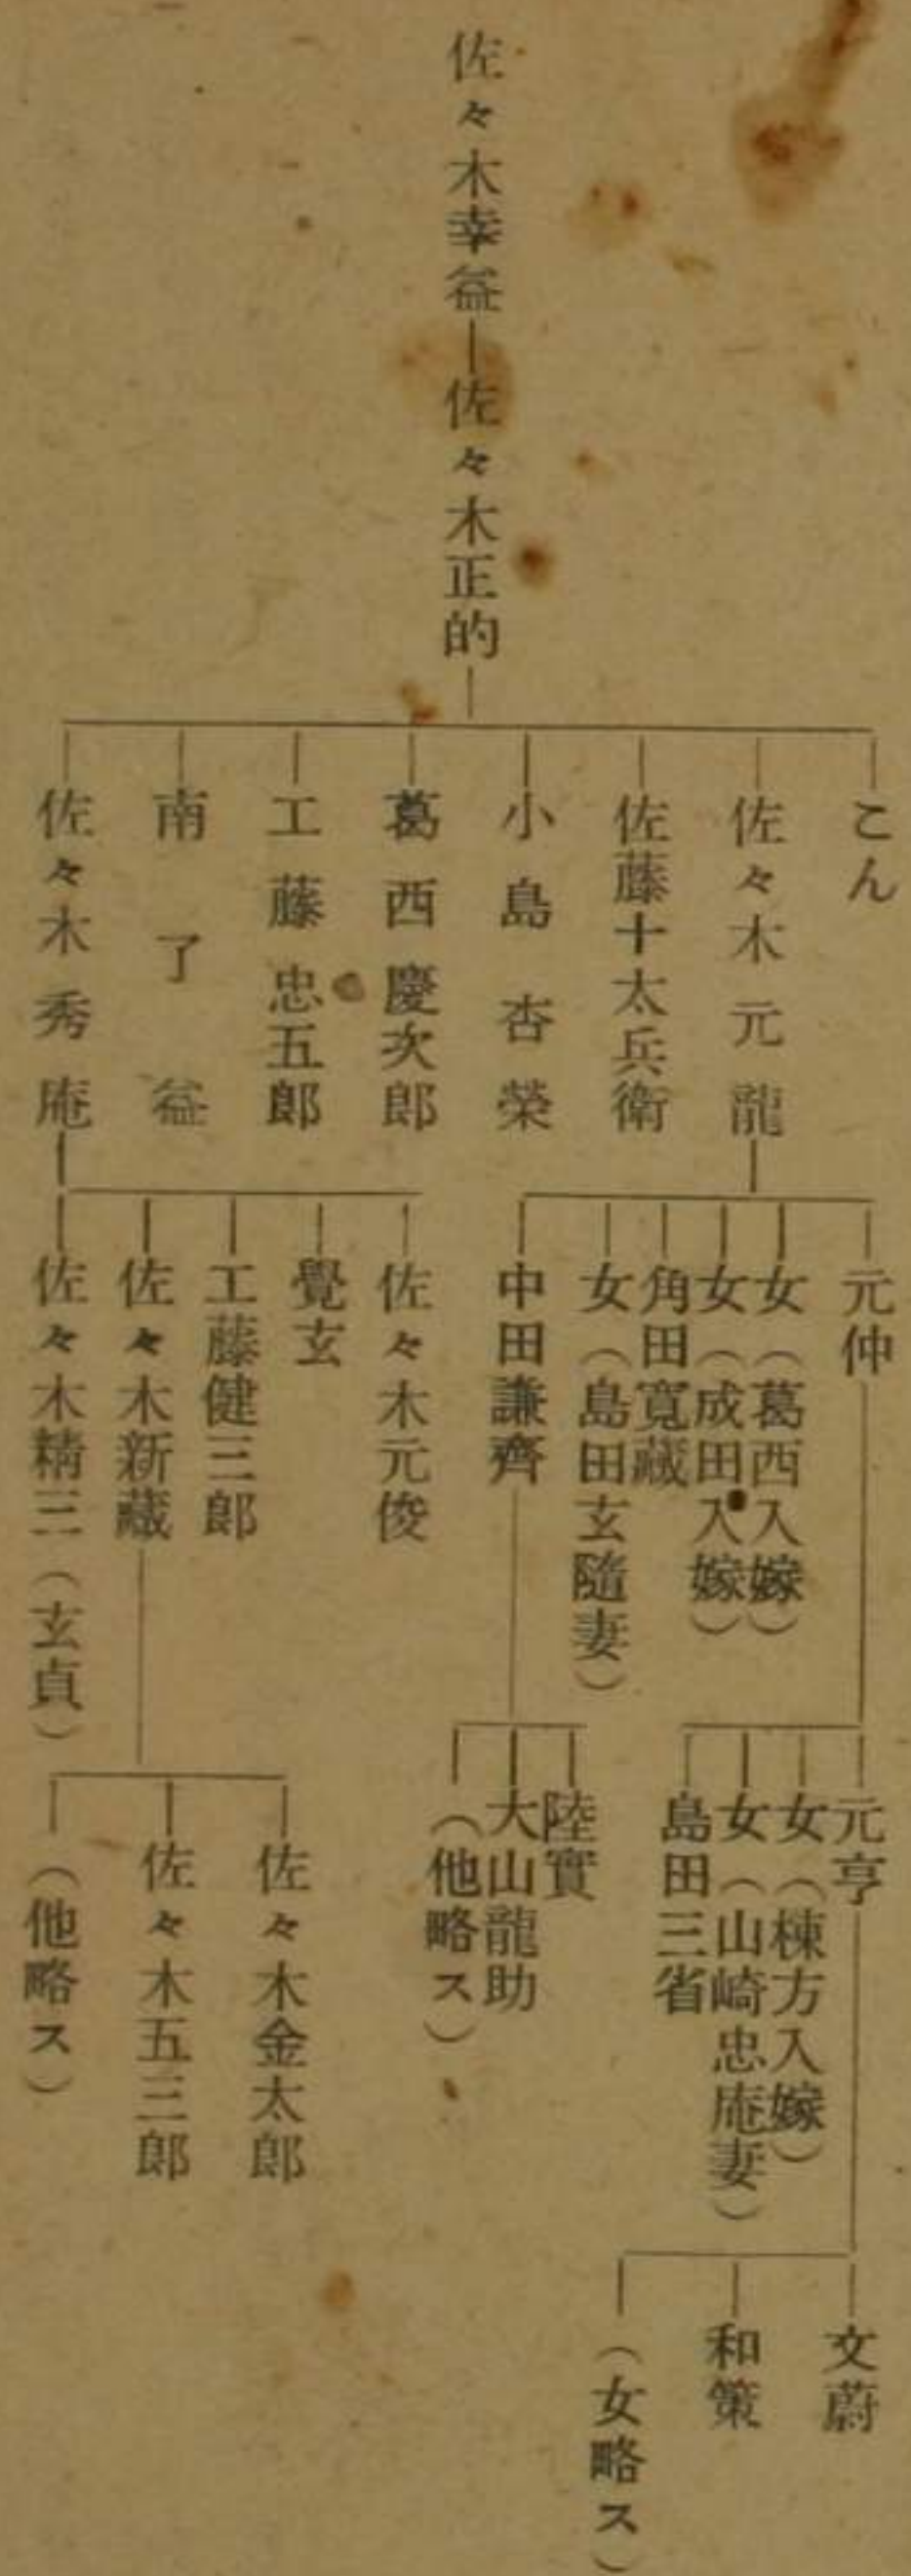 佐々木幸益
佐々木正的
こん
佐々木元龍
佐藤十太兵衛
小島杏榮
葛西慶次郎
工藤忠五郎
南了益
佐々木秀庵
元仲
女（葛西入嫁）
女（成田入嫁）
角田寛蔵
女（島田玄隨妻）
中田謙齊
佐々木元俊
覺玄
工藤健三郎
佐々木新蔵
佐々木精三（玄貞）
元亨
女（棟方入嫁）
女（山崎忠庵妻）
島田三省
陸實
大山龍助
（他略ス）
佐々木金太郎
佐々木五三郎
（他略ス）
文蔚
和策
（女略ス）